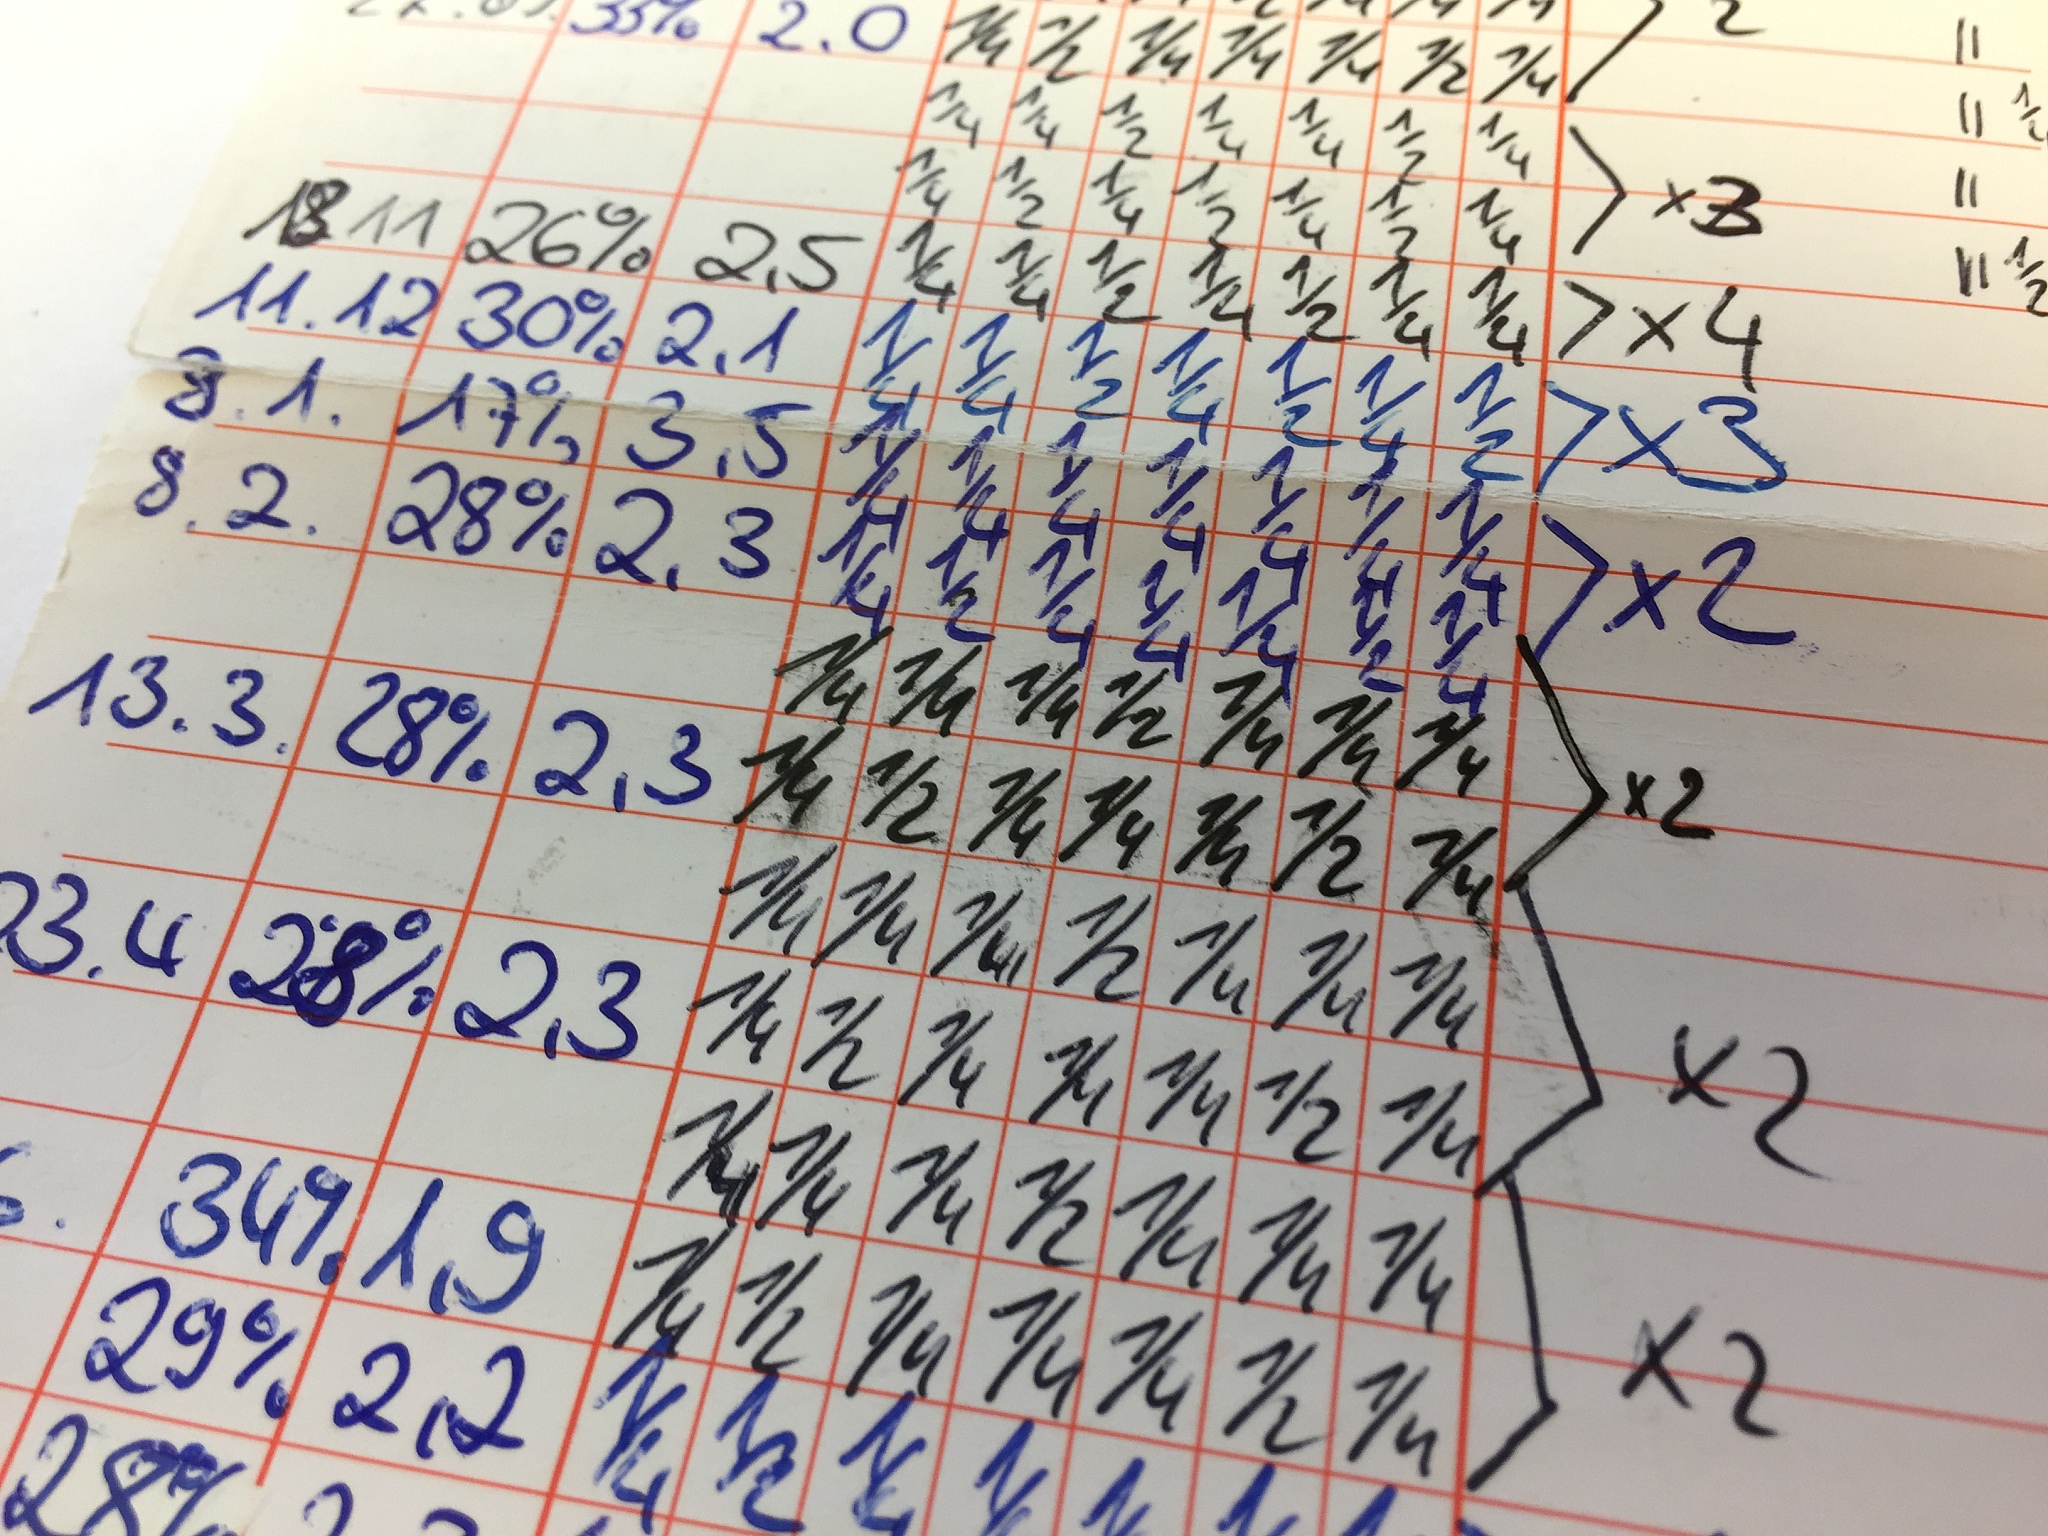 33% 2.0 1/4 1/2 1/4 1/4 1/4 1/2 1/4 2 11
1/4 1/4 1/2 1/4 1/4 1/2 1/4 11
1/4 1/2 1/4 1/2 1/4 1/2 1/4 x3 11
18 11 26% 2,5 1/4 1/4 1/2 1/4 1/2 1/4 1/4 x4 11 1/2
11.12 30% 2,1 1/4 1/4 1/2 1/4 1/2 1/4 1/2 x3
8.1. 17% 3,5 1/4 1/4 1/4 1/4 1/4 1/4 1/4
8.2. 28% 2,3 1/4 1/2 1/4 1/4 1/4 1/2 1/4 x2
1/4 1/4 1/4 1/2 1/4 1/4 1/4
13.3. 28% 2,3 1/4 1/2 1/4 1/4 1/4 1/2 1/4 x2
1/4 1/4 1/4 1/2 1/4 1/4 1/4
23.4 28% 2,3 1/4 1/2 1/4 1/4 1/4 1/2 1/4 x2
1/4 1/4 1/4 1/2 1/4 1/4 1/4
34% 1,9 1/4 1/2 1/4 1/4 1/4 1/2 1/4 x2
29% 2,2 1/4 1/2
28%